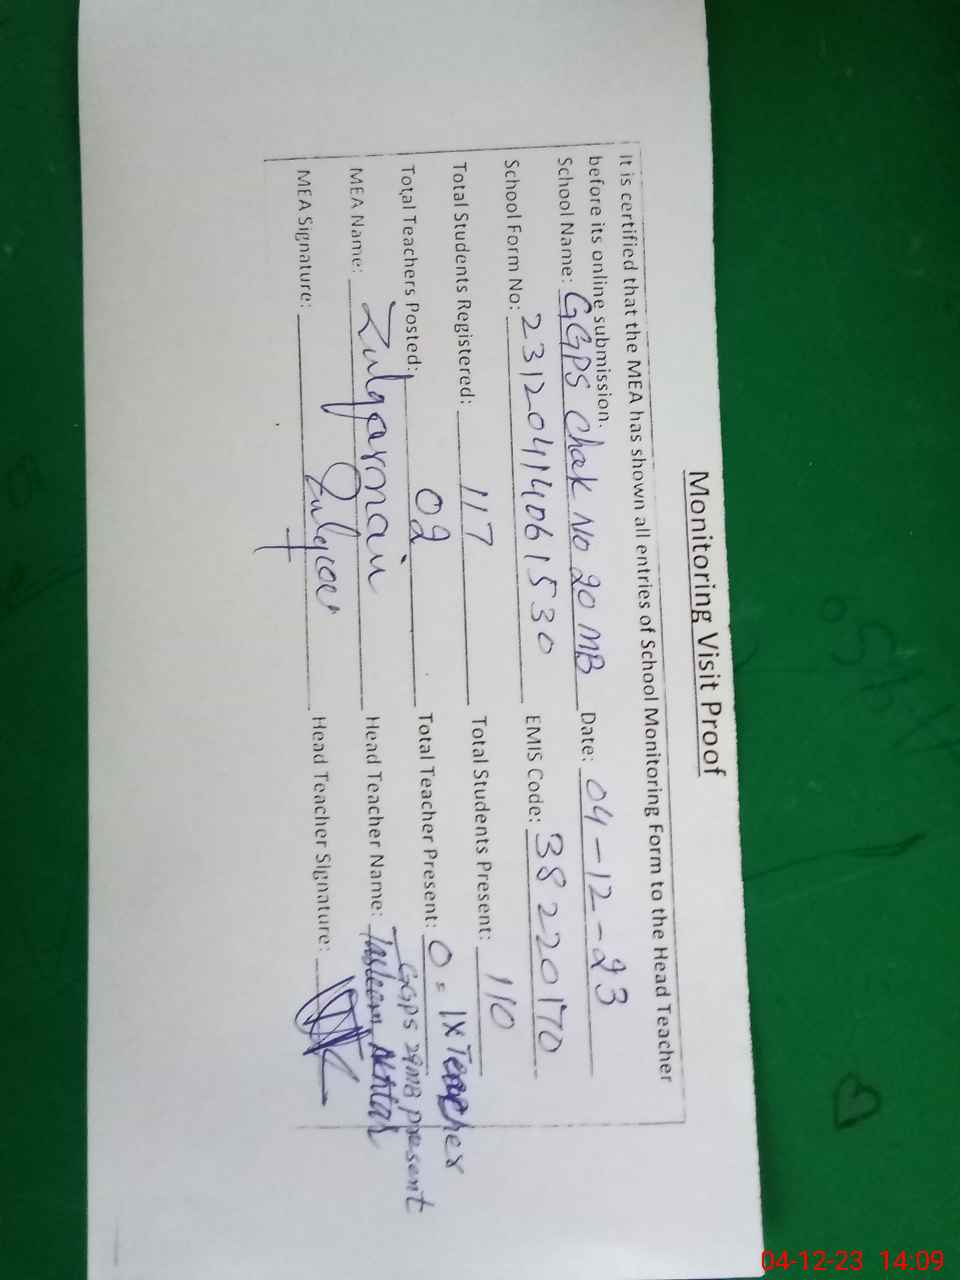 Monitoring Visit Proof
It is certified that the MEA has shown all entries of School Monitoring Form to the Head Teacher
before its online submission.
School Name: GGPS Chak No 20 MB Date: 04-12-23
School Form No: 23120414061530 EMIS Code: 38220170
Total Students Registered: 117 Total Students Present: 110
Total Teachers Posted: 02 Total Teacher Present: 0 = 1X Teacher
GGPS 29MB present
MEA Name: Zulqarnain Head Teacher Name: Tasleem Akhtar
MEA Signature: Head Teacher Signature:
04-12-23 14:09